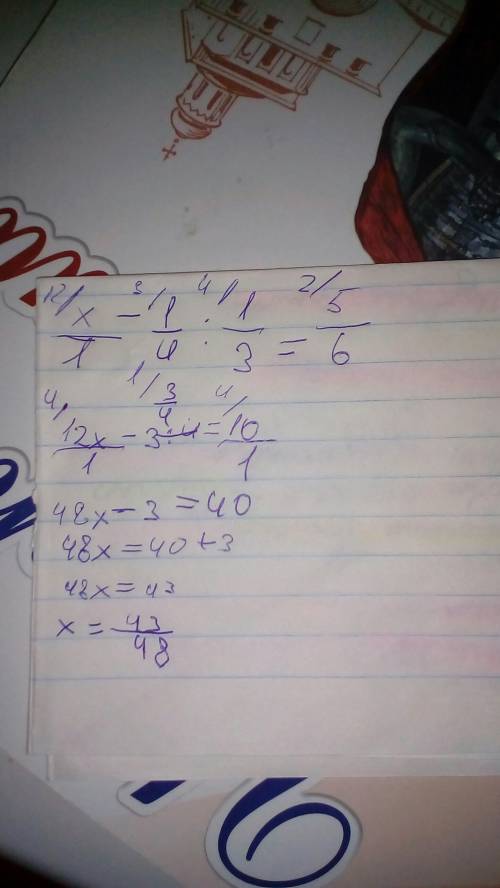 12/ x/1 - 3/ 1/4 : 4/ 1/3 = 2/ 5/6
4/ 12x/1 - 1/ 3/4 3:4 = 4/ 10/1
48x - 3 = 40
48x = 40 + 3
48x = 43
x = 43/48